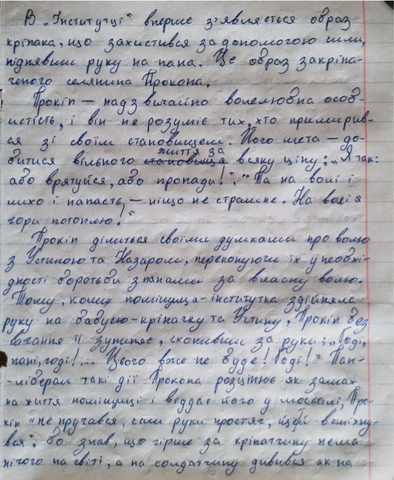 В „Інститутці" вперше з'являється образ
кріпака, що захистився за допомогою сили,
піднявши руку на пана. Це образ закріпа-
ченого селянина Прокопа.
Прокіп – надзвичайно волелюбна особ-
истість, і він не розуміє тих, хто примирив-
ся зі своїм становищем. Його мета – до-
битися вільного життя за всяку ціну: „Я так:
або врятуйся, або пропади!"; „Та на волі і
лихо і напасть – ніщо не страшне. На волі я
гори потоплю!"
Прокіп ділиться своїми думками про волю
з Устиною та Назаром, переконуючи їх у необхі-
дності боротьби з панами за власну волю.
Тому, коли поміщиця-інститутка здійняла
руку на бабусю-кріпачку та Устину, Прокіп без
вагання її зупиняє, схопивши за руки: „Годі,
пані, годі!... Цього вже не буде! Годі!" Пан-
-ліберал такі дії Прокопа розцінює як замах
на життя поміщиці і віддає його у москалі, Про-
кіп „не пручався, сам руки простяг, ще й
бо знав, що гірше за кріпатчину нема
нічого на світі, а на солдатчину дивився як на